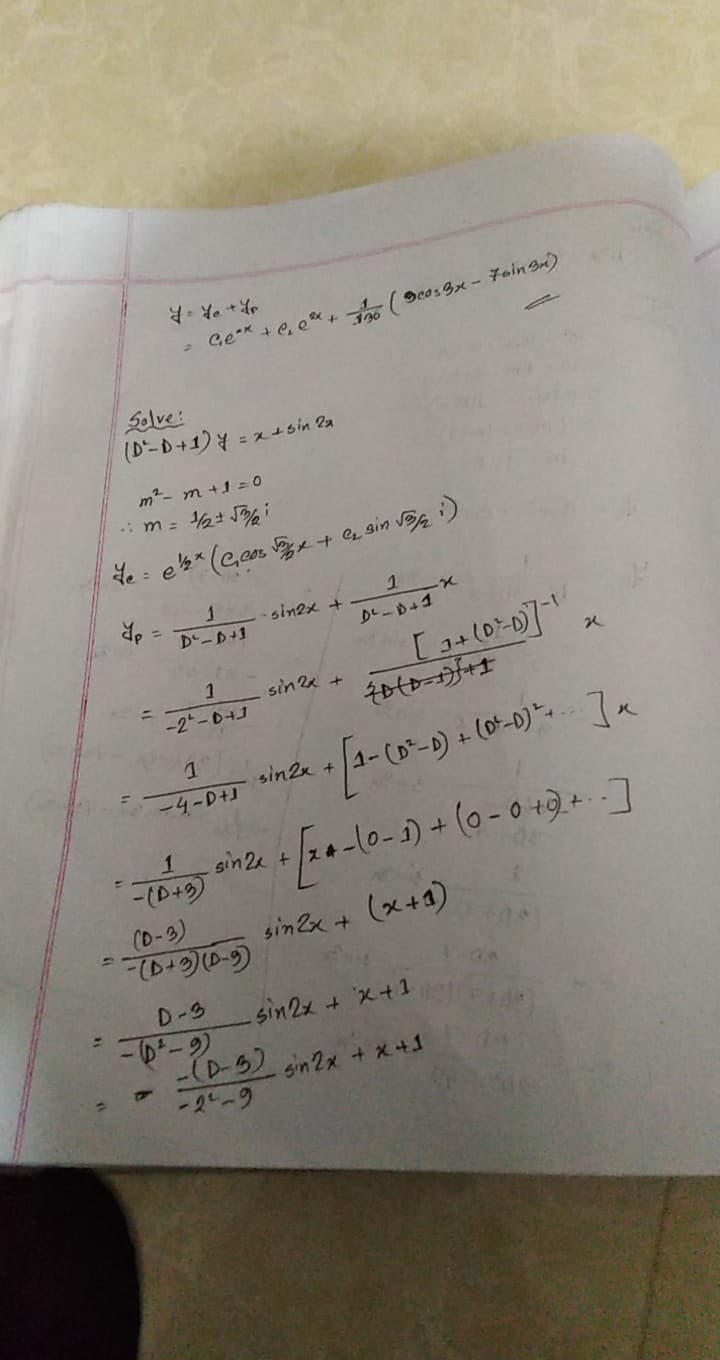 y = yc + yp
= C₁e⁻ˣ + C₂ e²ˣ + 1/130 (9cos3x - 7sin3x)
Solve:
(D²-D+1) y = x + sin 2x
m² - m + 1 = 0
∴ m = 1/2 ± √3/2 i
yc = e^{1/2 x} (C₁cos √3/2 x + C₂ sin √3/2 i)
yp = 1/(D²-D+1) · sin2x + 1/(D²-D+1) x
= 1/(-2²-D+1) sin 2x + [1+(D²-D)]⁻¹ x
= 1/(-4-D+1) sin2x + [1-(D²-D) + (D²-D)² + ...] x
= 1/(-(D+3)) sin2x + [x - (0-1) + (0-0+0) + ..]
= (D-3)/(-(D+3)(D-3)) sin2x + (x+1)
= D-3/(-(D²-9)) sin2x + x+1
= -(D-3)/(-2²-9) sin2x + x+1